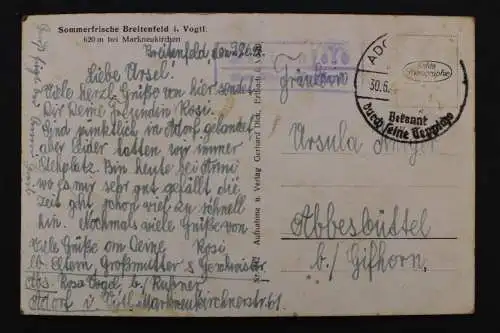 Sommerfrische Breitenfeld i. Vogtl.
620 m bei Markneukirchen
Breitenfeld, den 29.6.
Liebe Ursel.
Viele herzl. Grüße von hier sendet
Dir Deine Freundin Rosi.
Sind pünktlich in Adorf gelandet
aber leider hatten wir immer
Stehplatz. Bin heute bei
wo es mir sehr gut gefällt die
Zeit geht schon viel zu schnell
hin. Nochmals viele Grüße von
Viele Grüße an Deine Rosi
lb. Eltern, Großmutter & Geschwister
Abs. Rosa Vogel b/
Adorf i. Vgtl. Markneukirchnerstr. 61
Aufnahme u. Verlag Gerhard
Fräulein
Ursula
Abbesbüttel
b./ Gifhorn.
Echte Photographie
AD
30.6.
Bekannt
durch seine Teppiche